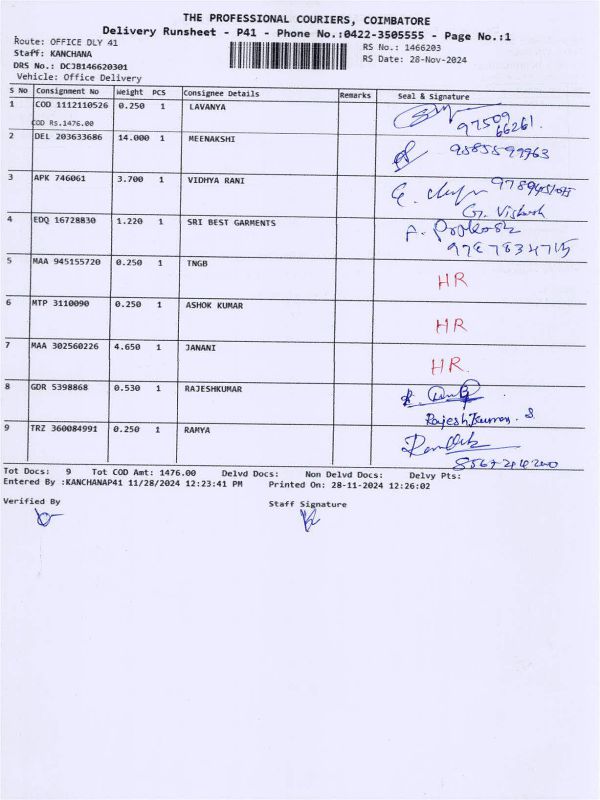 THE PROFESSIONAL COURIERS, COIMBATORE
Delivery Runsheet - P41 - Phone No.:0422-3505555 - Page No.:1
Route: OFFICE DLY 41 RS No.: 1466203
Staff: KANCHANA RS Date: 28-Nov-2024
DRS No.: DCJB146620301
Vehicle: Office Delivery
S No Consignment No Weight PCS Consignee Details Remarks Seal & Signature
1 COD 1112110526 0.250 1 LAVANYA
COD Rs.1476.00 97509
66261.
2 DEL 203633686 14.000 1 MEENAKSHI
3 APK 746061 3.700 1 VIDHYA RANI
4 EDQ 16728830 1.220 1 SRI BEST GARMENTS
5 MAA 945155720 0.250 1 TNGB HR
6 MTP 3110090 0.250 1 ASHOK KUMAR HR
7 MAA 302560226 4.650 1 JANANI HR
8 GDR 5398868 0.530 1 RAJESHKUMAR
Rajesh Kumar. S
9 TRZ 360084991 0.250 1 RAMYA
Tot Docs: 9 Tot COD Amt: 1476.00 Delvd Docs: Non Delvd Docs: Delvy Pts:
Entered By :KANCHANAP41 11/28/2024 12:23:41 PM Printed On: 28-11-2024 12:26:02
Verified By Staff Signature